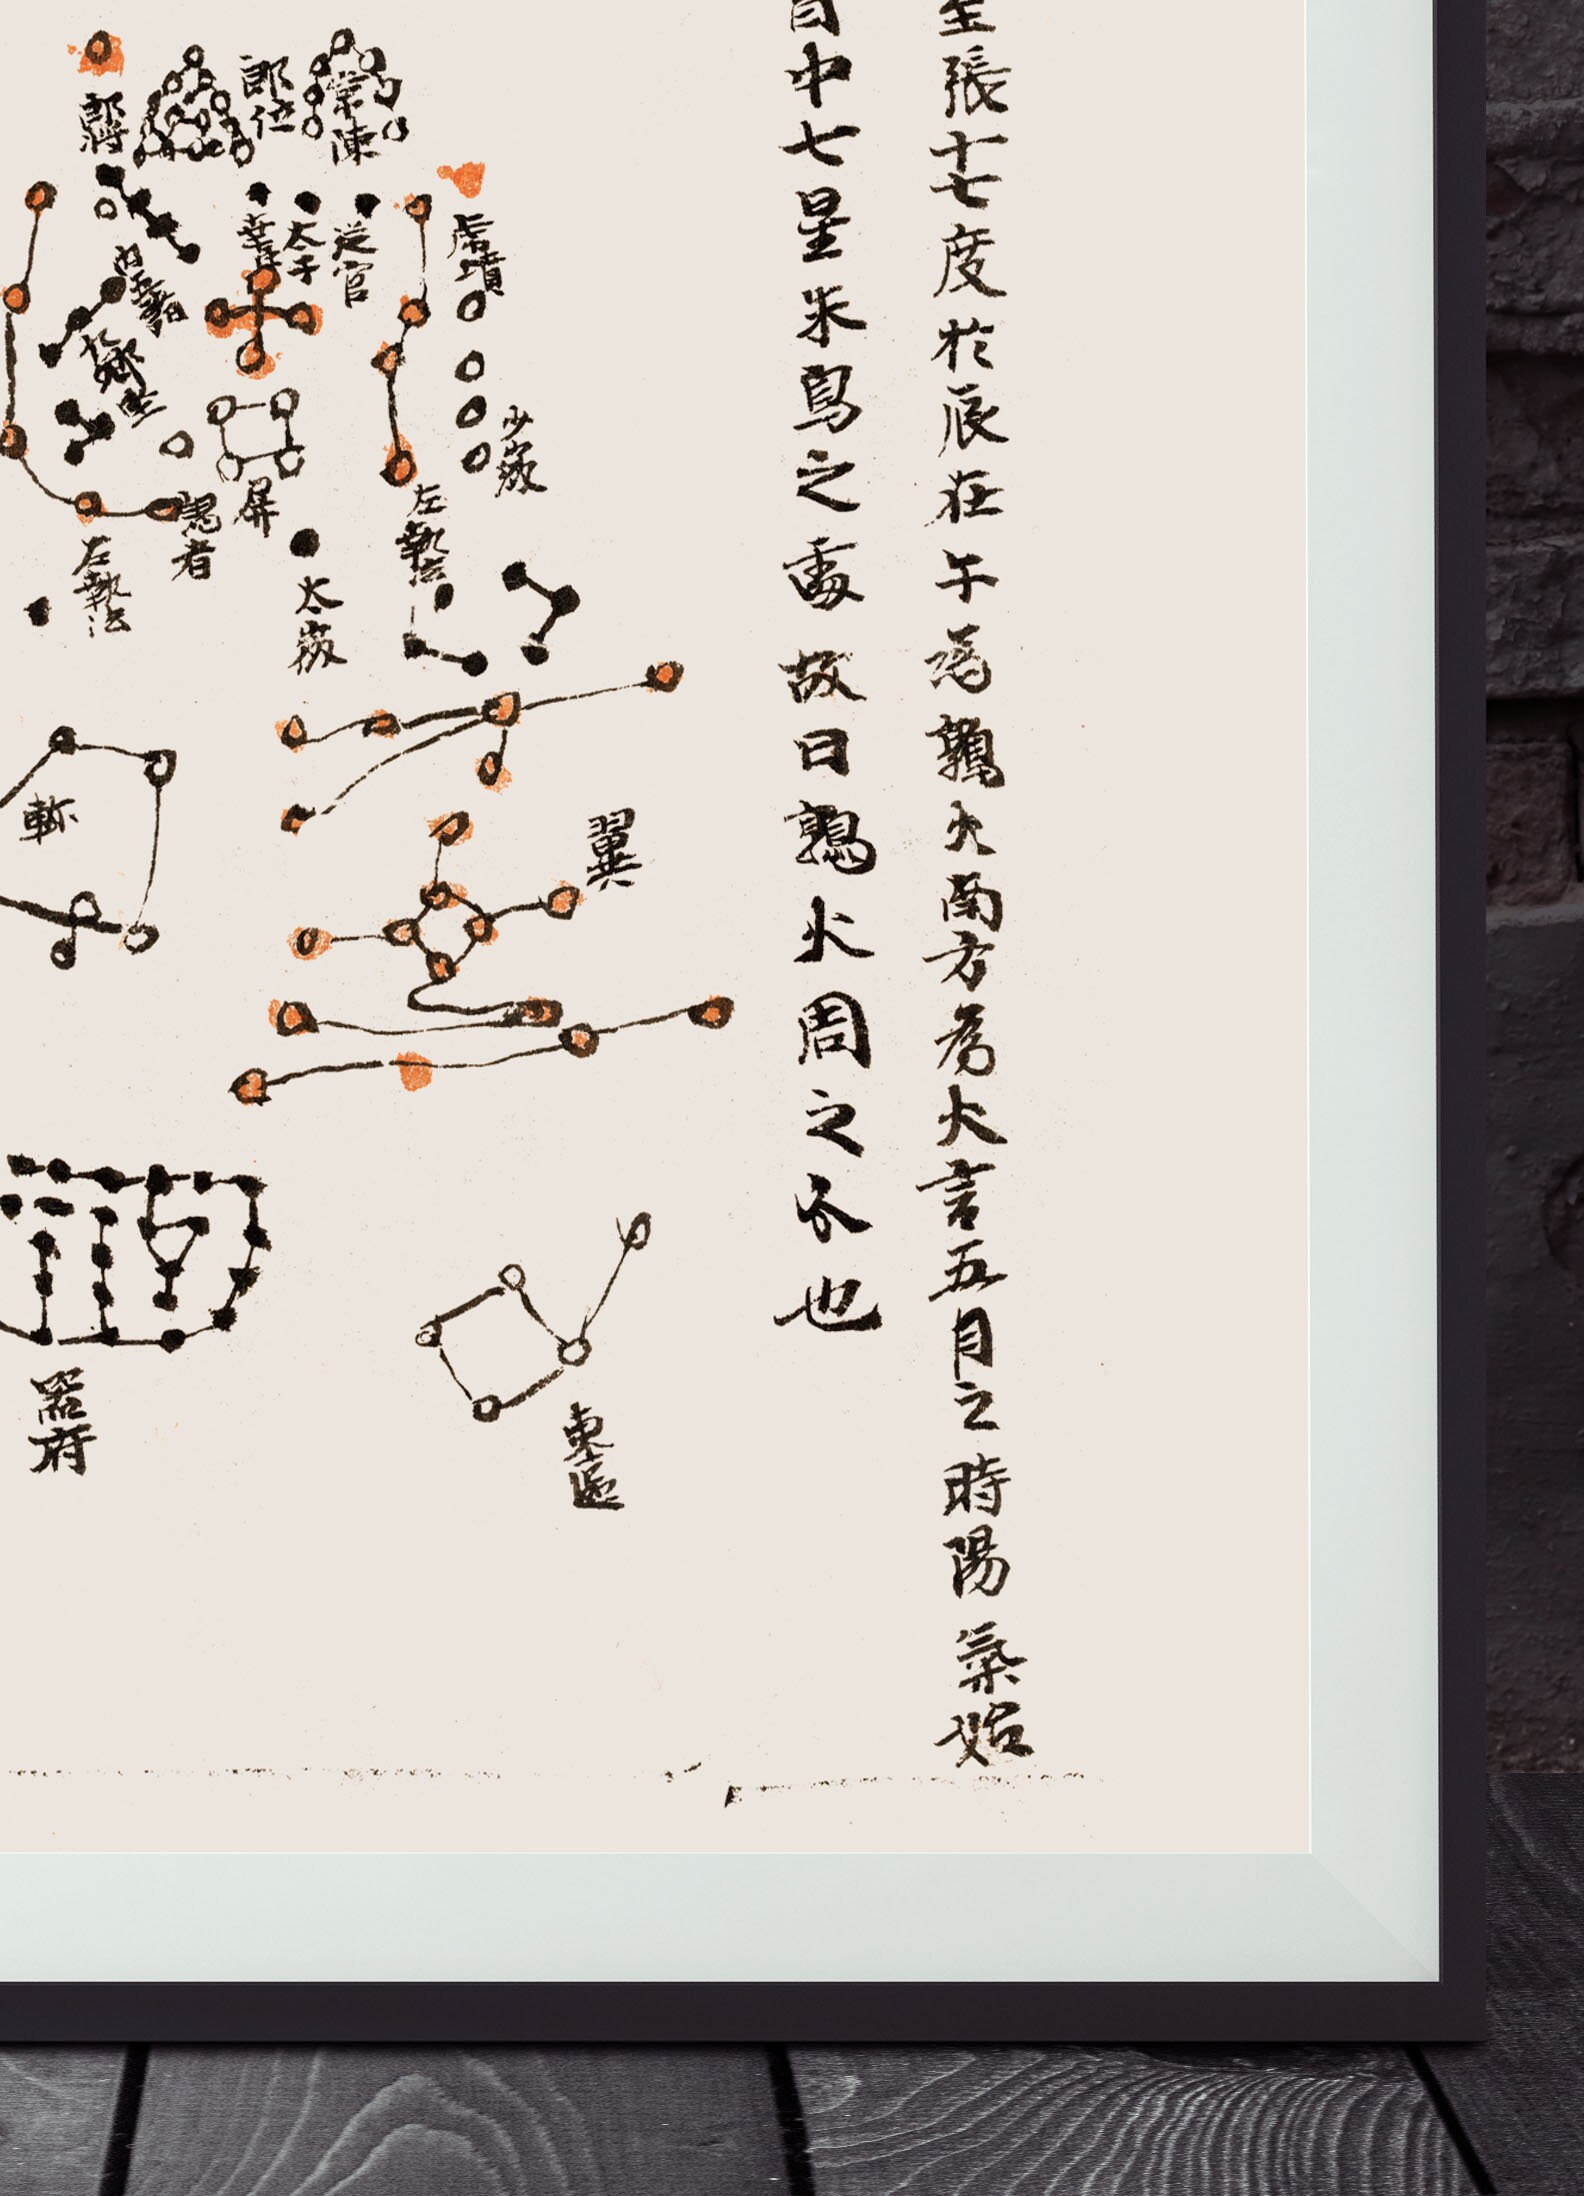 張十七度於辰在午為鶉火南方為火言五月之時陽氣始
中七星朱鳥之處故曰鶉火周之分也
常陳
郎位
郎將
虎賁
從官
太子
幸臣
少微
左執法
屏
謁者
左執法
太微
翼
軫
東區
器府